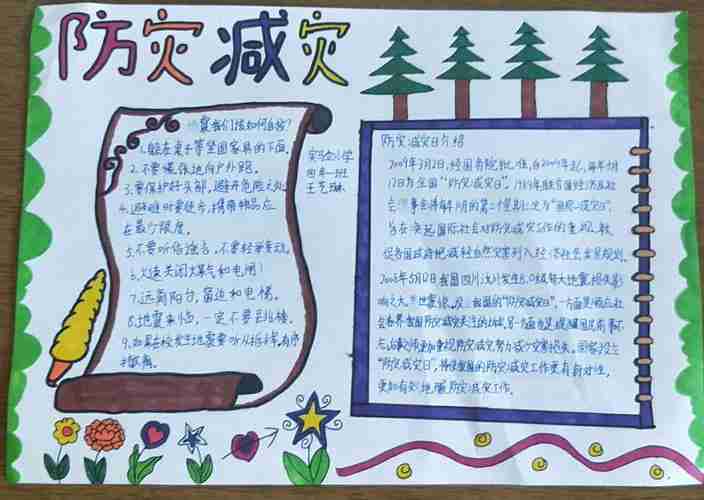 防灾减灾
震我们该如何自救?
1.躲在桌子等坚固家具的下面.
2.不要慌张地向户外跑.
3.要保护好头部,避开危险之处
4.避难时要徒步,携带物品应
在最少限度.
5.不要听信谣言,不要轻举妄动.
6.火速关闭煤气和电闸!
7.远离阳台,窗边和电梯.
8.地震来临,一定不要乘
9.如果在校发生地震要听从指挥,有序
实验小学
四年一班
王艺
防灾减灾日介绍
2009年3月2日,经国务院批准,自2009年起,每年5月
12日为全国“防灾减灾日”。1989年联合国经济及社
会理事会将每年10月的第二个星期三定为“国际减灾日”,
旨在唤起国际社会对防灾减灾工作的重视,敦
促各国政府把减轻自然灾害列入经济社会发展规划.
2008年5月12日我国四川汶川发生8.0级特大地震,损失影
响之大
我国的“防灾减灾日”,一方面是顺应社
会各界我国防灾减灾关注的
另一方面也是提醒国民前事不
忘,
更加重视防灾减灾,努力减少灾害损失。国家设立
“防灾减灾日”,将使我国的防灾减灾工作更有针对性,
更加有效地开展防灾减灾工作。